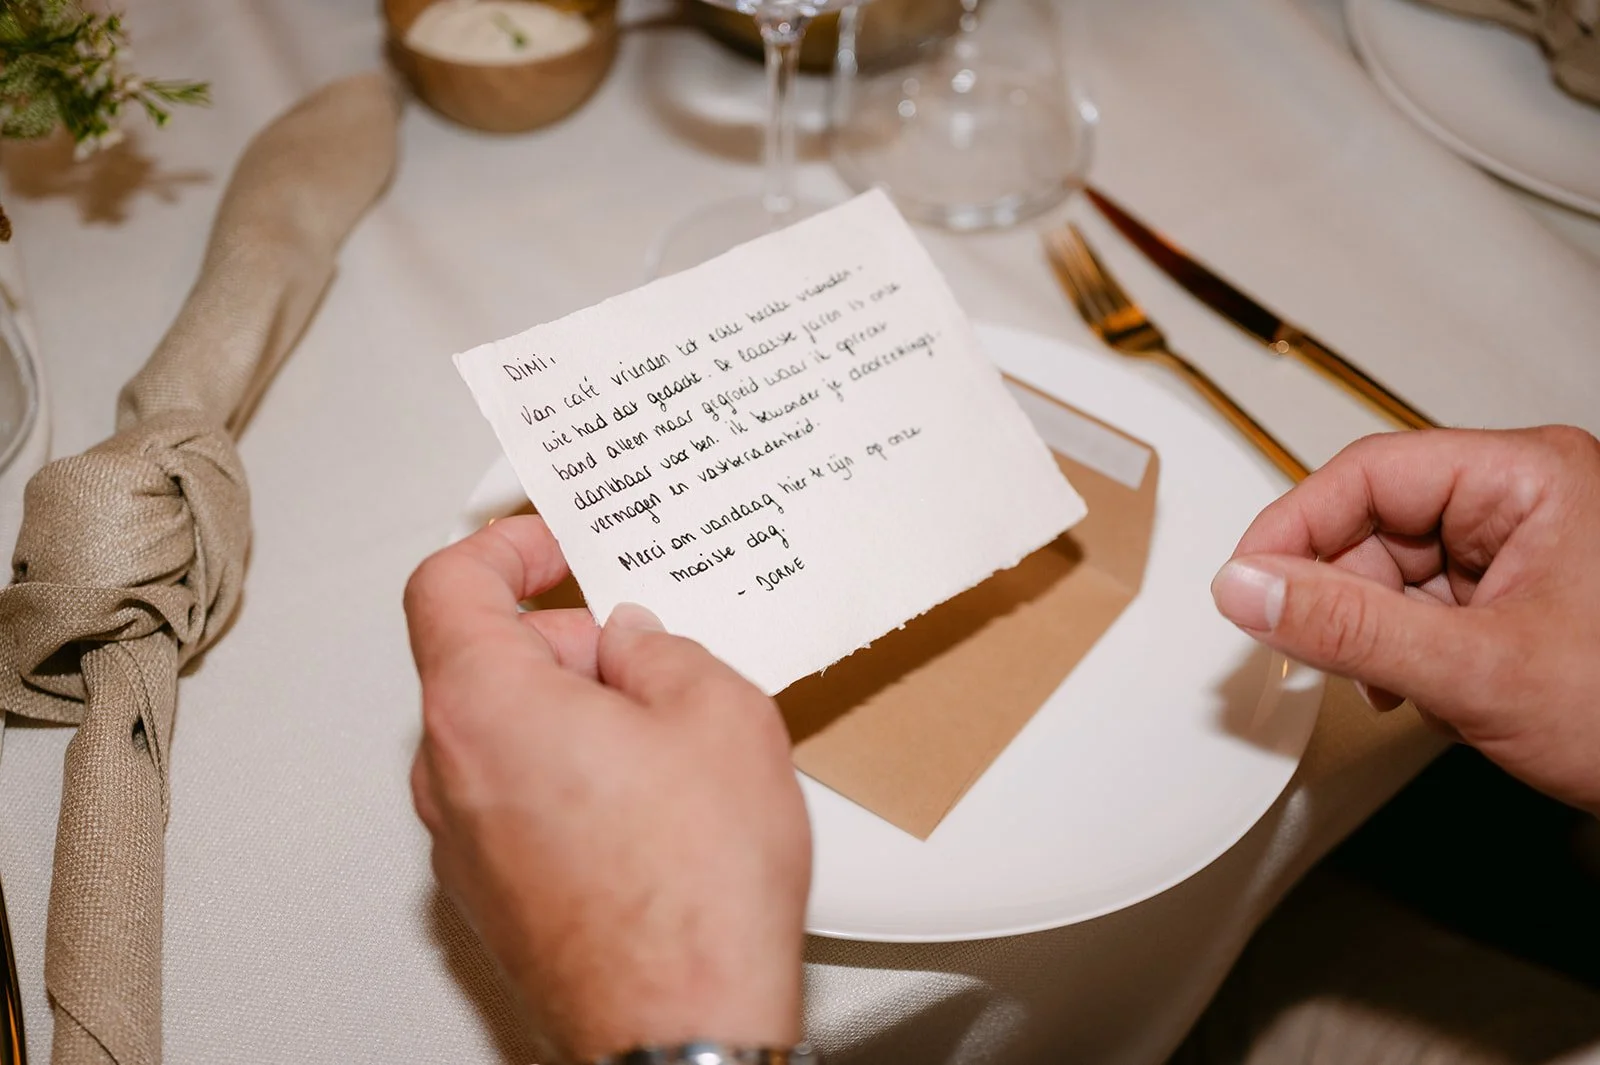 DIMI,
Van café vrienden tot echte hechte vrienden -
wie had dat gedacht. De laatste jaren is onze
band alleen maar gegroeid waar ik oprecht
dankbaar voor ben. ik bewonder je doorzettings-
vermogen en vastberadenheid.
Merci om vandaag hier te zijn op onze
mooiste dag.
- JORNE